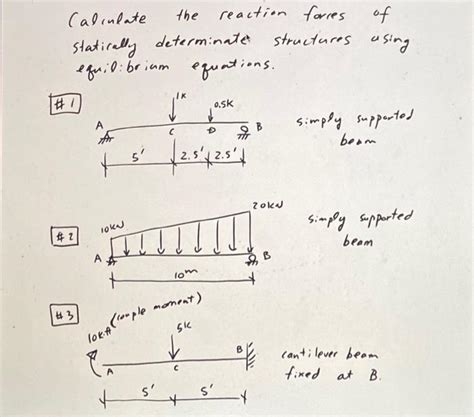 Calculate the reaction forces of
statically determinate structures using
equilibrium equations.
#1
1K
0.5K
A
C
D
B
simply supported
beam
5'
2.5'
2.5'
20kN
10kN
#2
simply supported
beam
A
B
10m
#3
(couple moment)
10k.ft
5K
A
C
B
cantilever beam
fixed at B.
5'
5'